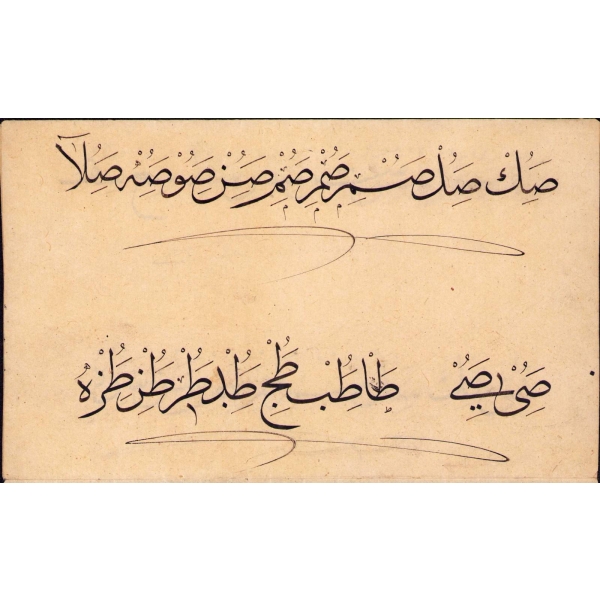 صك صل صم صم صم صن صو صه صلا
صى صے طا طب طج طد طر طز طزه